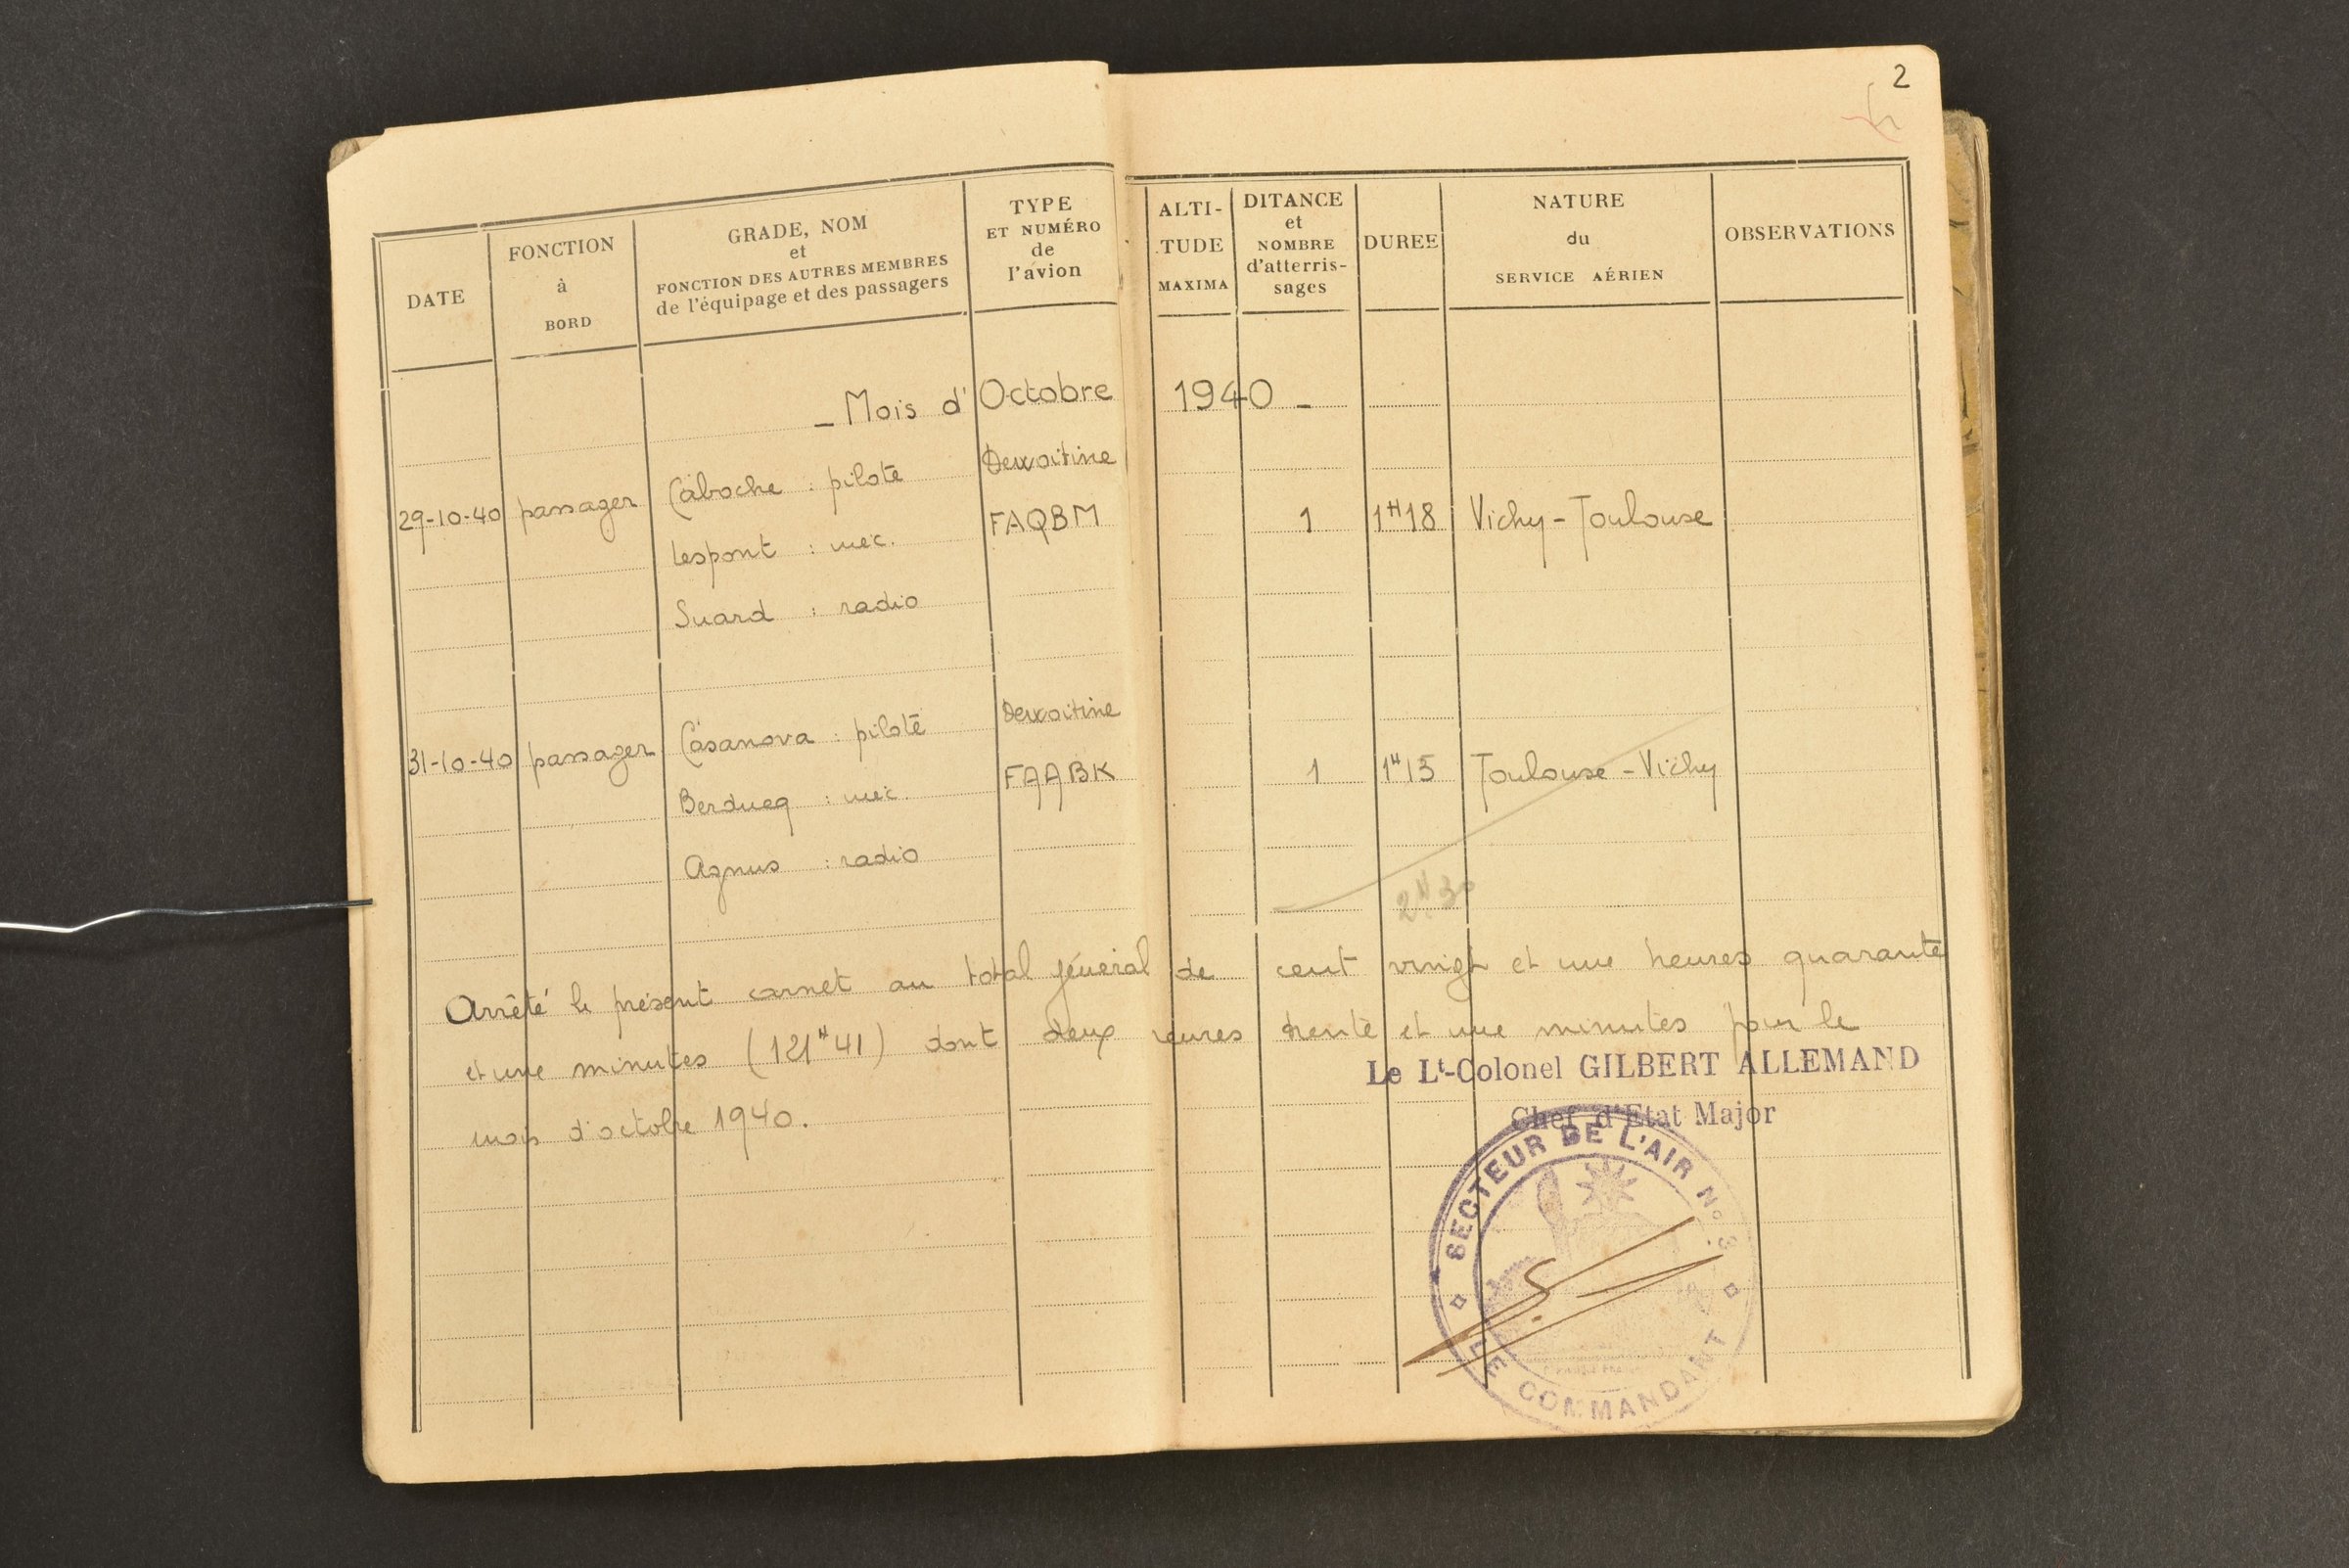 2
DATE
FONCTION
à
BORD
GRADE, NOM
et
FONCTION DES AUTRES MEMBRES
de l'équipage et des passagers
TYPE
ET NUMÉRO
de
l'avion
ALTI-
TUDE
MAXIMA
DITANCE
et
NOMBRE
d'atterris-
sages
DUREE
NATURE
du
SERVICE AÉRIEN
OBSERVATIONS
- Mois d' Octobre 1940 -
Dewoitine
29-10-40 passager Caboche : pilote FAQBM 1 1H18 Vichy - Toulouse
Lespont : mec.
Suard : radio
Dewoitine
31-10-40 passager Casanova : pilote FAABK 1 1H15 Toulouse - Vichy
Berducq : mec.
Agnus : radio
2H30
Arrêté le présent carnet au total général de cent vingt et une heures quarante
et une minutes (121H41) dont deux heures trente et une minutes pour le
mois d'octobre 1940.
Le Lt-Colonel GILBERT ALLEMAND
Chef d'Etat Major
SECTEUR DE L'AIR No 3
LE COMMANDANT